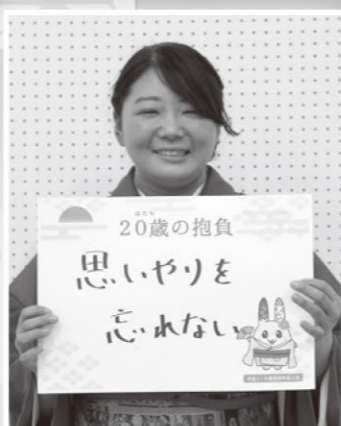 はたち
20歳の抱負
思いやりを
忘れない